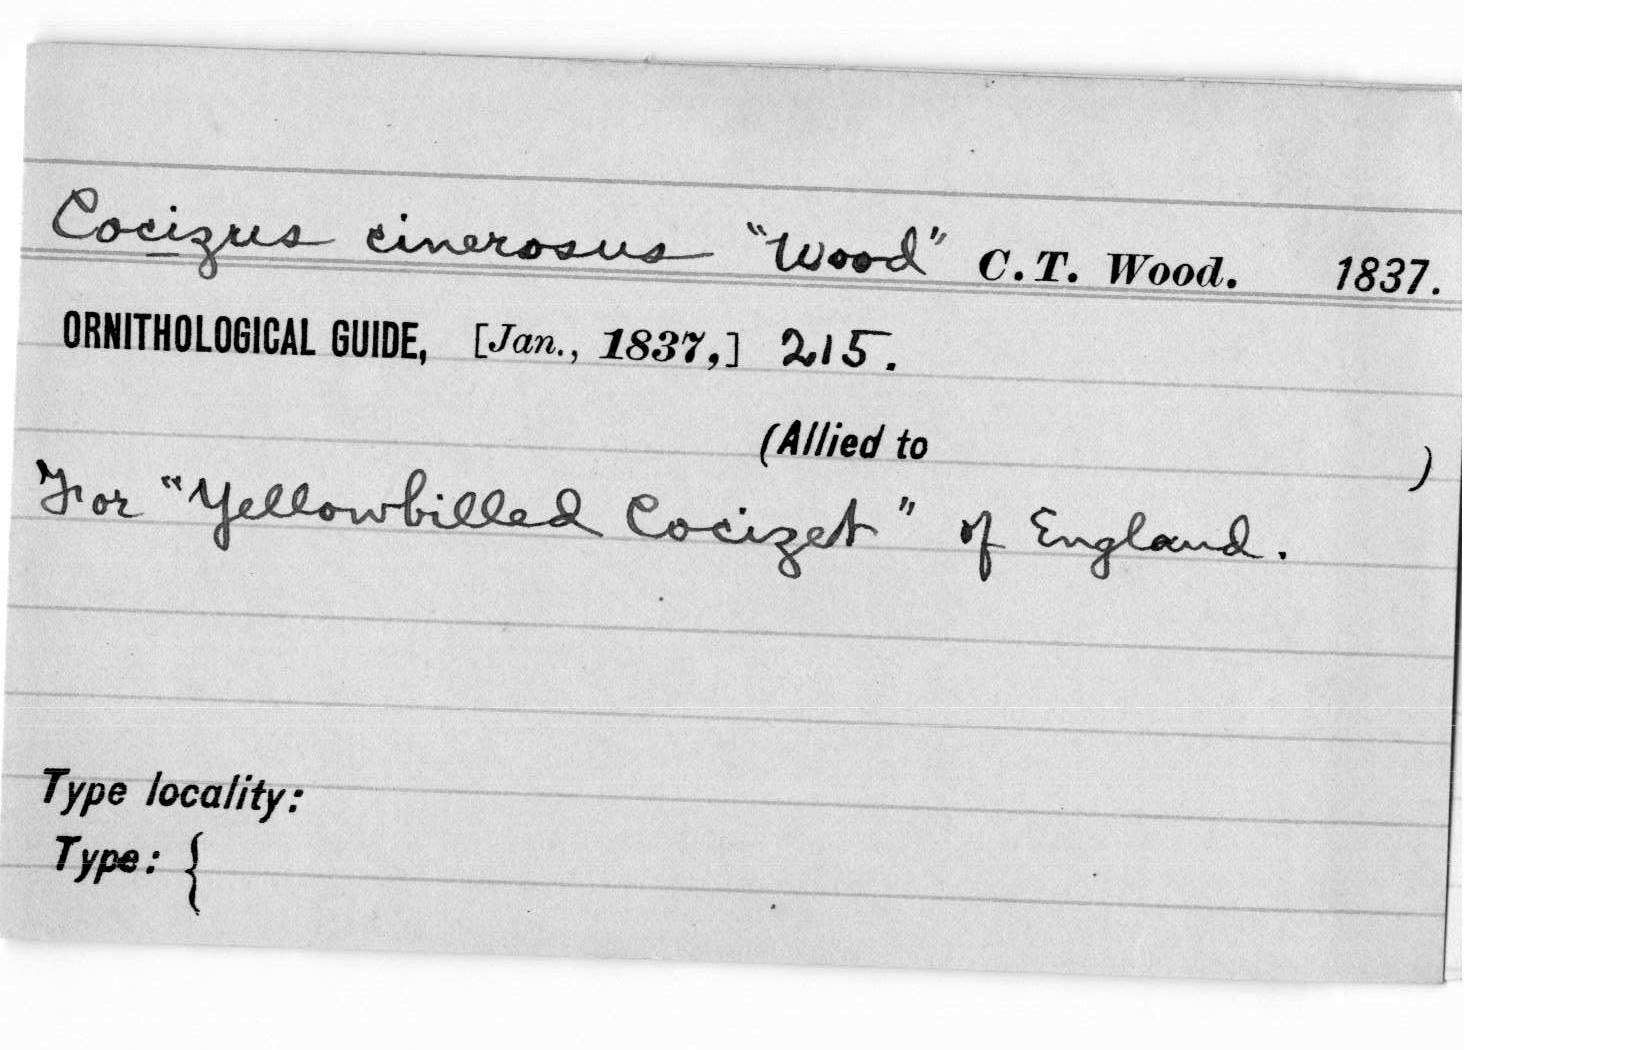 Cocizus cinerosus "Wood" C. T. Wood. 1837.
ORNITHOLOGICAL GUIDE, [Jan., 1837,] 215.
(Allied to )
For "Yellowbilled Cocizet" of England.
Type locality:
Type: {